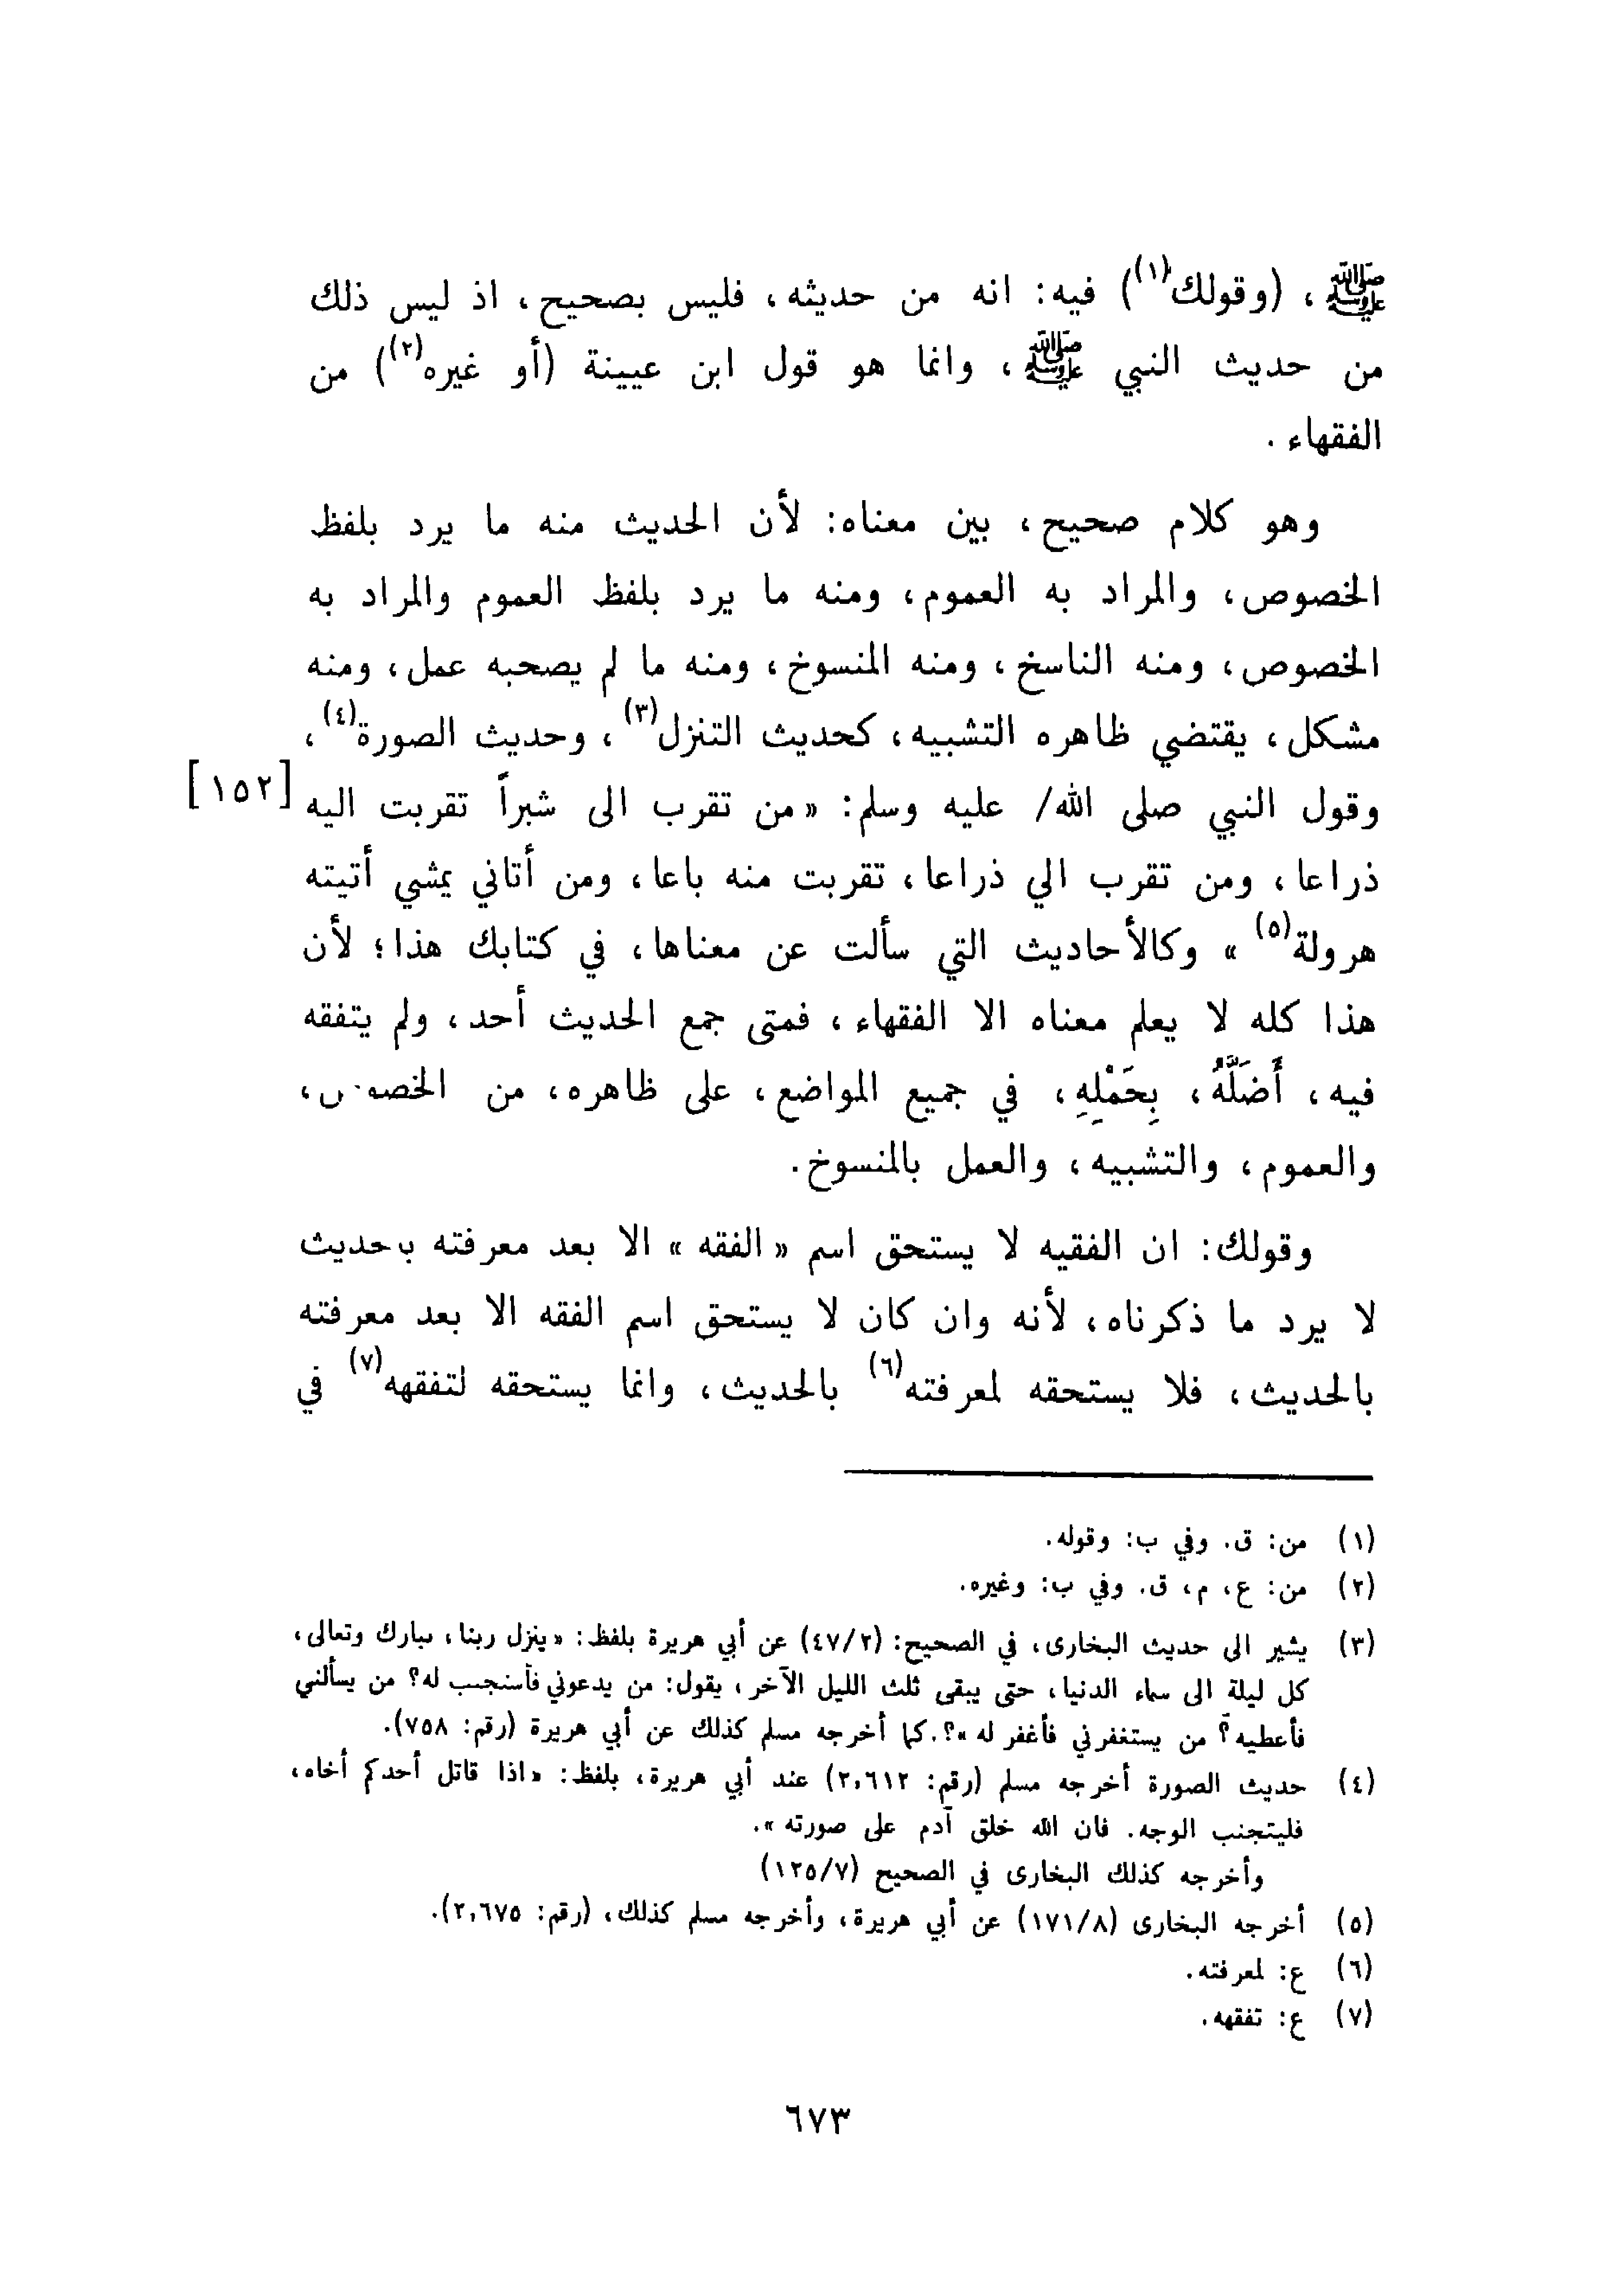 ﷺ ، (وقولك(١)) فيه: انه من حديثه، فليس بصحيح، اذ ليس ذلك
من حديث النبي ﷺ ، وانما هو قول ابن عيينة (أو غيره(٢)) من
الفقهاء .
وهو كلام صحيح، بين معناه: لأن الحديث منه ما يرد بلفظ
الخصوص، والمراد به العموم، ومنه ما يرد بلفظ العموم والمراد به
الخصوص، ومنه الناسخ، ومنه المنسوخ، ومنه ما لم يصحبه عمل، ومنه
مشكل، يقتضي ظاهره التشبيه، كحديث التنزل(٣)، وحديث الصورة(٤)،
وقول النبي صلى الله/ عليه وسلم: «من تقرب الى شبراً تقربت اليه [١٥٢]
ذراعا، ومن تقرب الي ذراعا، تقربت منه باعا، ومن أتاني يمشي أتيته
هرولة(٥)» وكالأحاديث التي سألت عن معناها، في كتابك هذا؛ لأن
هذا كله لا يعلم معناه الا الفقهاء، فمتى جمع الحديث أحد، ولم يتفقه
فيه، أَضَلَّهُ، بِحَمْلِهِ، في جميع المواضع، على ظاهره، من الخصوص،
والعموم، والتشبيه، والعمل بالمنسوخ.
وقولك: ان الفقيه لا يستحق اسم «الفقه» الا بعد معرفته بحديث
لا يرد ما ذكرناه، لأنه وان كان لا يستحق اسم الفقه الا بعد معرفته
بالحديث، فلا يستحقه لمعرفته(٦) بالحديث، وانما يستحقه لتفقهه(٧) في
(١) من: ق. وفي ب: وقوله.
(٢) من: ع، م، ق. وفي ب: وغيره.
(٣) يشير الى حديث البخارى، في الصحيح: (٤٧/٢) عن أبي هريرة بلفظ: «ينزل ربنا، تبارك وتعالى،
كل ليلة الى سماء الدنيا، حتى يبقى ثلث الليل الآخر، يقول: من يدعوني فأستجيب له؟ من يسألني
فأعطيه؟ من يستغفرني فأغفر له»؟. كما أخرجه مسلم كذلك عن أبي هريرة (رقم: ٧٥٨).
(٤) حديث الصورة أخرجه مسلم (رقم: ٢,٦١٢) عند أبي هريرة، بلفظ: «اذا قاتل أحدكم أخاه،
فليتجنب الوجه. فان الله خلق آدم على صورته».
وأخرجه كذلك البخارى في الصحيح (١٢٥/٧)
(٥) أخرجه البخارى (١٧١/٨) عن أبي هريرة، وأخرجه مسلم كذلك، (رقم: ٢,٦٧٥).
(٦) ع: لمعرفته.
(٧) ع: تفقهه.
٦٧٣